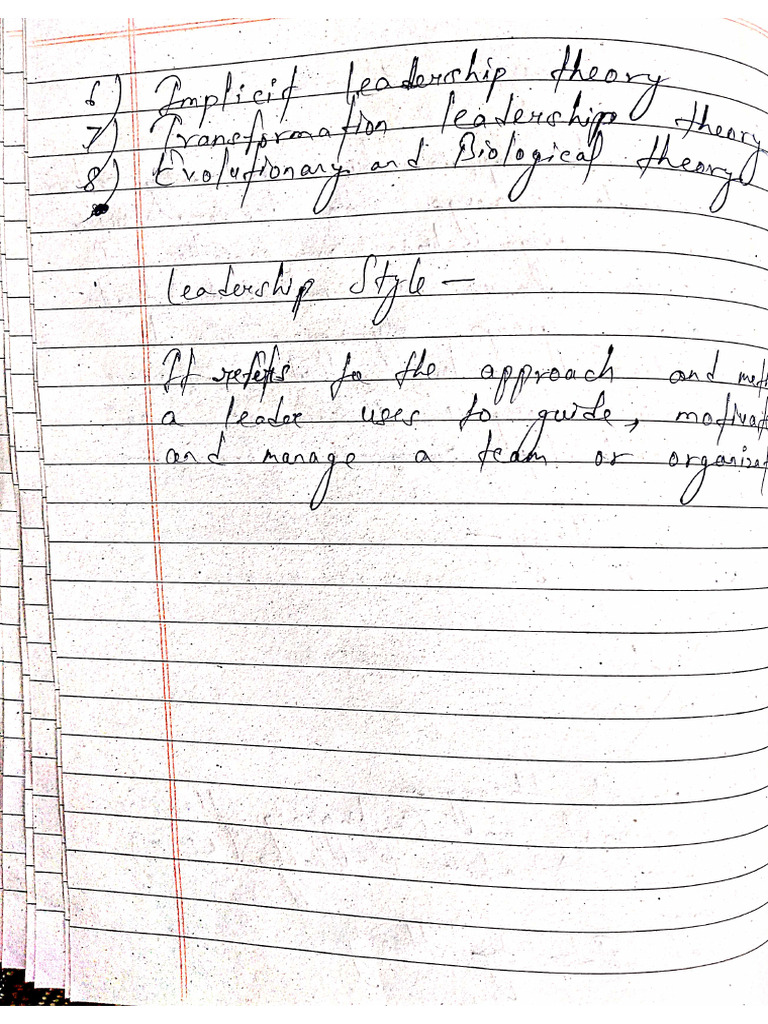 6) Implicit leadership theory
7) Transformation leadership theory
8) Evolutionary and Biological theory
Leadership Style —
It refers to the approach and
a leader uses to guide,
and manage a team or